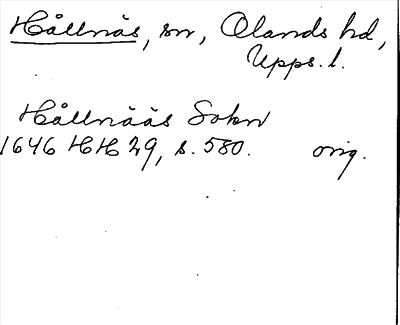 Hållnäs, sn, Olands hd,
Upps. l.
Hållnääs Sokn
1646 HH 29, s. 580. orig.